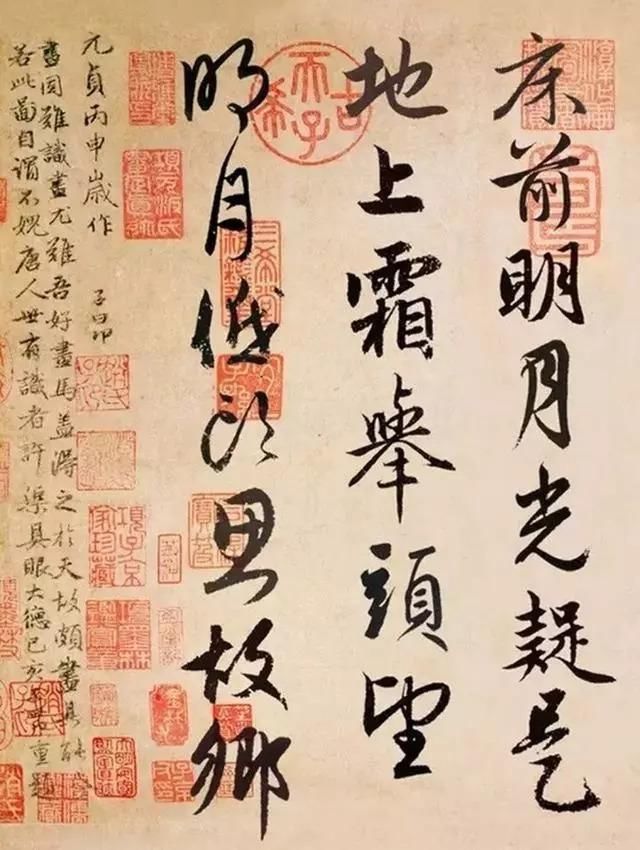 床前明月光疑是
地上霜舉頭望
明月低頭思故鄉
元貞丙申歲作
子昂
畫固難識畫尤難吾好畫馬蓋得之於天故頗盡其能事
若此圖自謂不媿唐人世有識者許渠具眼大德己亥子昂重題
古希天子
項子京家珍藏